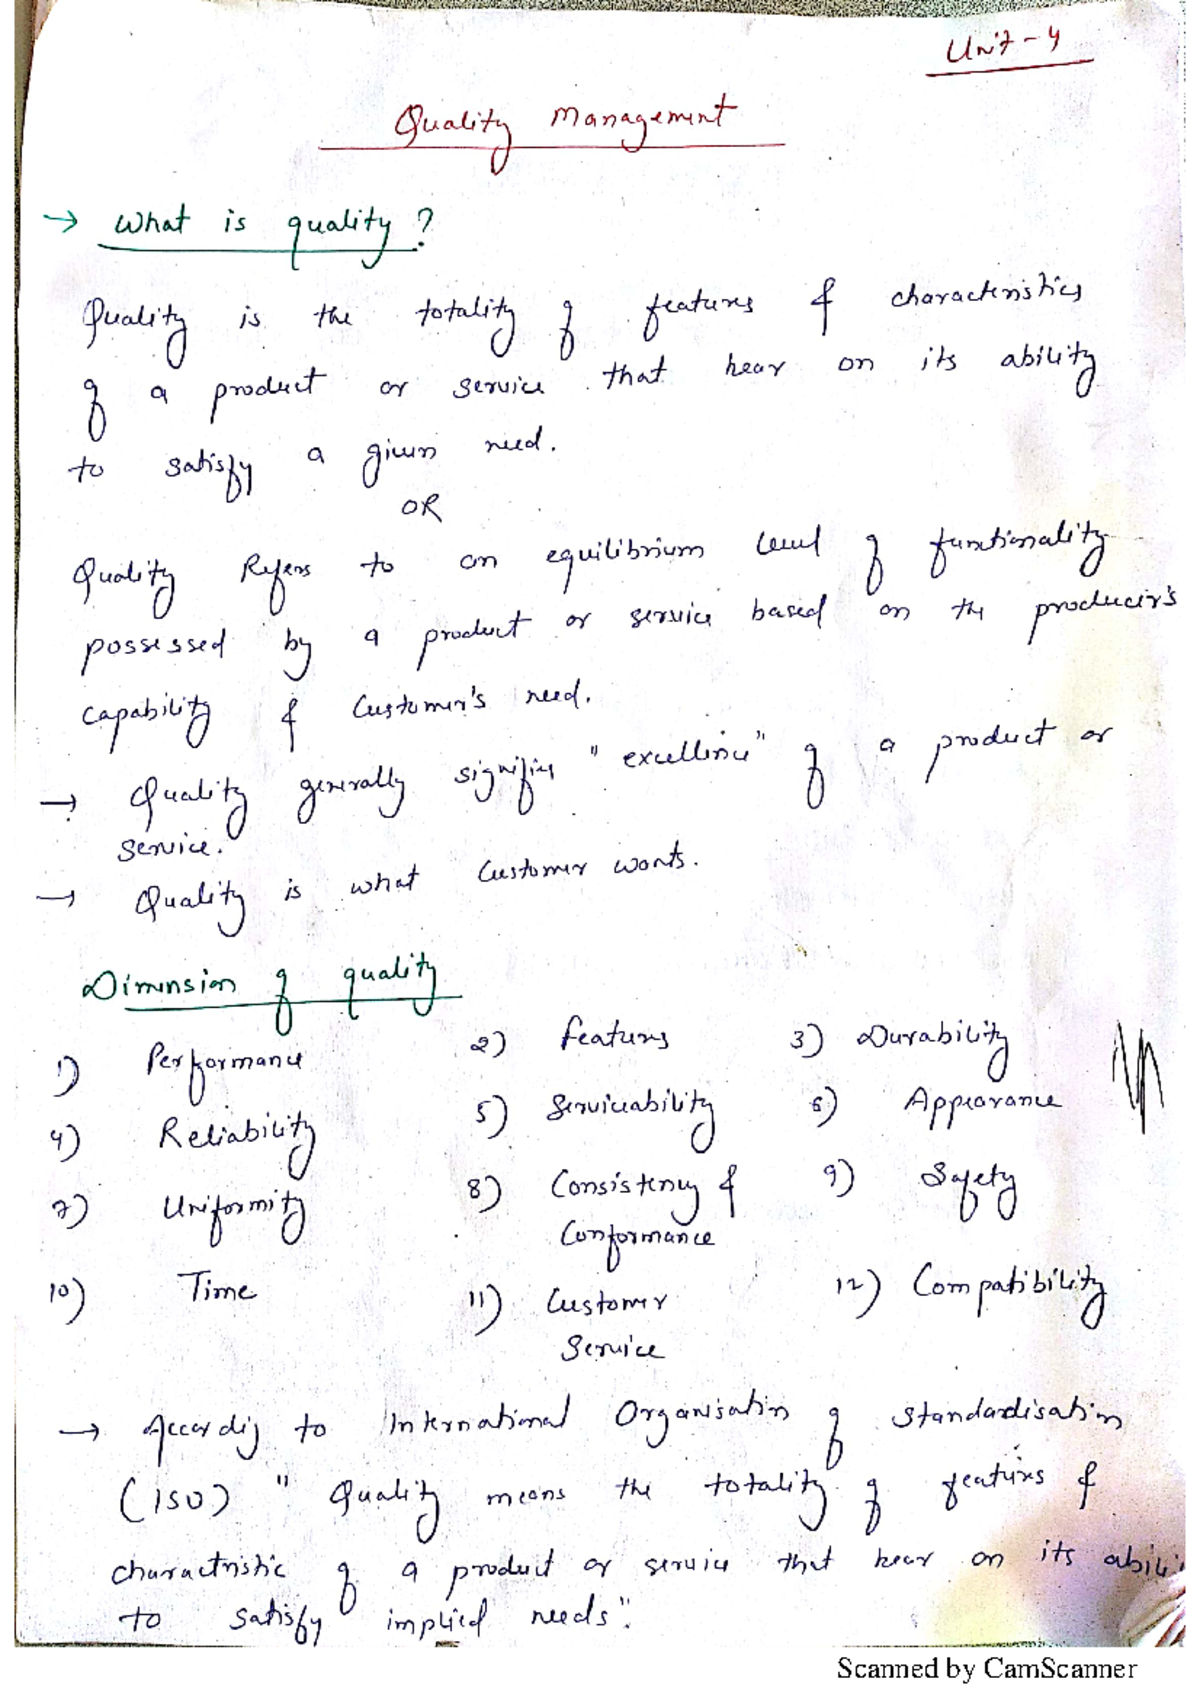 Unit - 4
Quality Management
→ What is quality?
Quality is the totality of features & characteristics
of a product or service that hear on its ability
to satisfy a given need.
OR
Quality Refers to an equilibrium level of functionality
possessed by a product or service based on the producer's
capability & Customer's need.
→ Quality generally signifies "excellence" of a product or
service.
→ Quality is what Customer wants.
Dimension of quality
1) Performance 2) features 3) Durability
4) Reliability 5) Serviceability 6) Appearance
7) Uniformity 8) Consistency & 9) Safety
Conformance
10) Time 11) Customer 12) Compatibility
Service
→ According to International Organisation of Standardisation
(ISO) "Quality means the totality of features &
charactristic of a product or service that hear on its abili
to satisfy implied needs".
Scanned by CamScanner